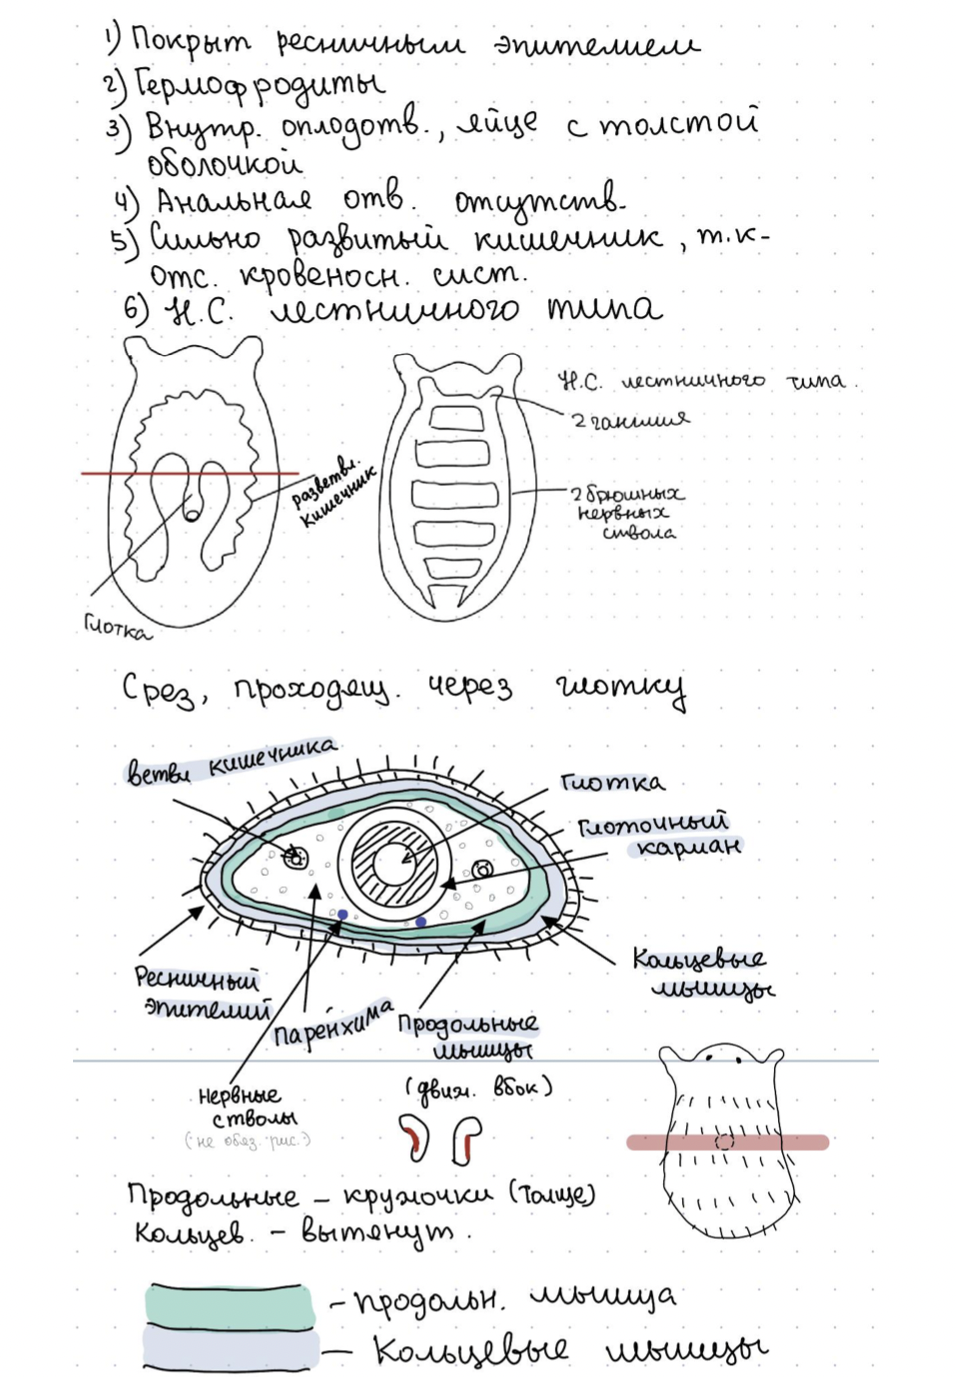 1) Покрыт ресничным эпителием
2) Гермофродиты
3) Внутр. оплодотв., яйце с толстой
оболочкой
4) Анальная отв. отсутств.
5) Сильно развитый кишечник, т.к.
отс. кровеносн. сист.
6) Н.С. лестничного типа
Н.С. лестничного типа.
2 ганглия
разветвл.
кишечник
2 брюшных
нервных
ствола
Глотка
Срез, проходящ. через глотку
ветви кишечника
Глотка
Глоточный
карман
Кольцевые
мышцы
Ресничный
эпителий
Паренхима
Продольные
мышцы
(движ. вбок)
Нервные
стволы
(не обяз. рис.)
Продольные – кружочки (Толще)
Кольцев. – вытянут.
– продольн. мышца
– Кольцевые мышцы